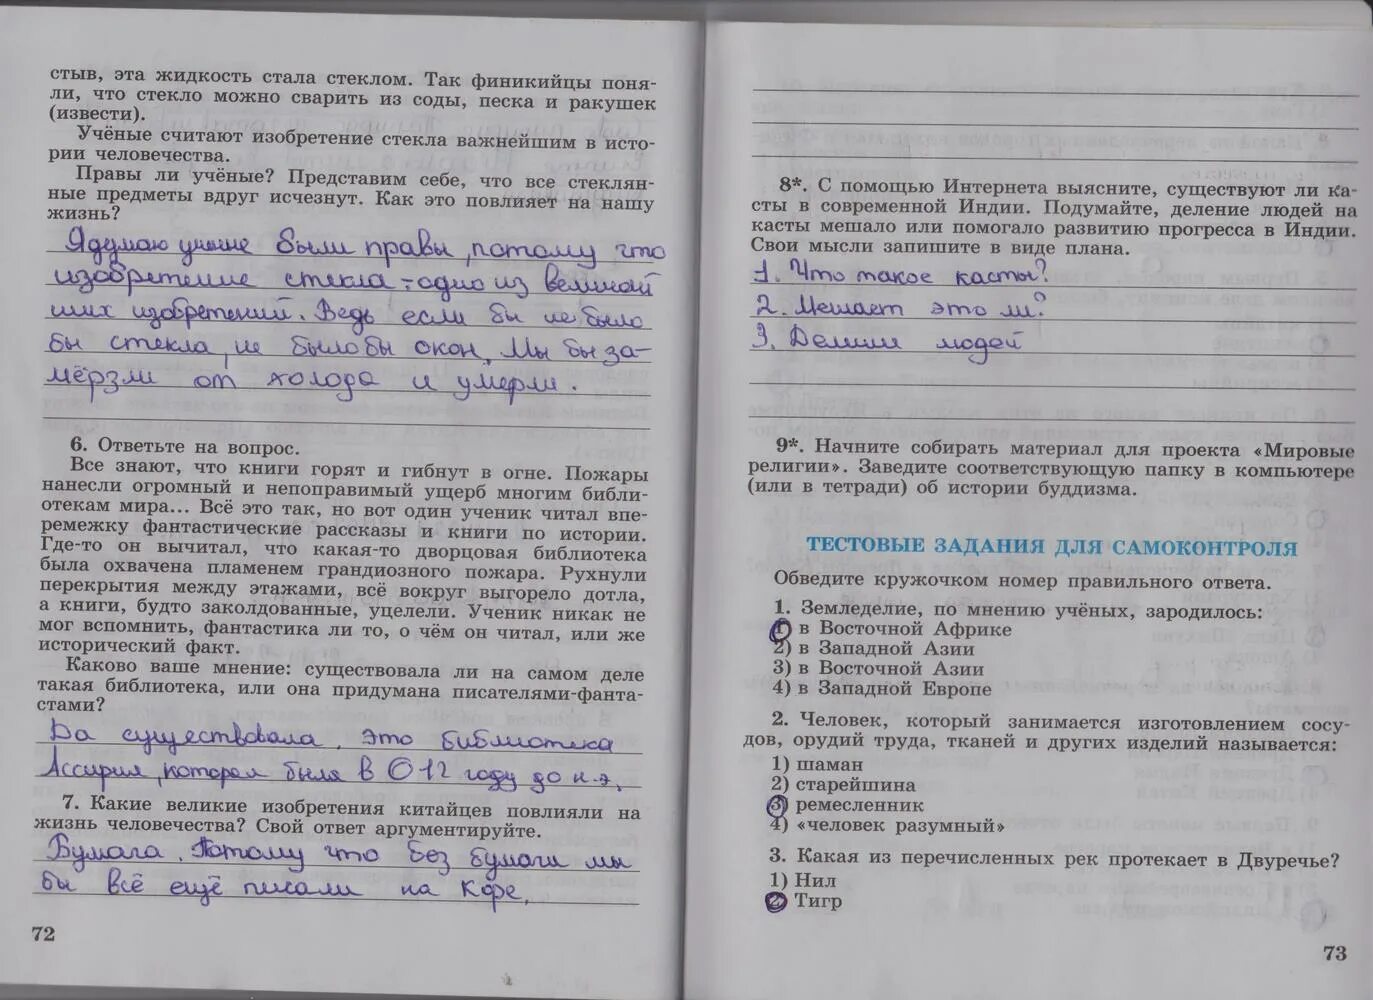 стыв, эта жидкость стала стеклом. Так финикийцы поня-
ли, что стекло можно сварить из соды, песка и ракушек
(извести).
Учёные считают изобретение стекла важнейшим в исто-
рии человечества.
Правы ли учёные? Представим себе, что все стеклян-
ные предметы вдруг исчезнут. Как это повлияет на нашу
жизнь?
Я думаю учёные были правы, потому что
изобретение стекла - одно из великай
ших изобретений. Ведь если бы не было
бы стекла, не было бы окон. Мы бы за-
мёрзли от холода и умерли.
6. Ответьте на вопрос.
Все знают, что книги горят и гибнут в огне. Пожары
нанесли огромный и непоправимый ущерб многим библи-
отекам мира... Всё это так, но вот один ученик читал впе-
ремежку фантастические рассказы и книги по истории.
Где-то он вычитал, что какая-то дворцовая библиотека
была охвачена пламенем грандиозного пожара. Рухнули
перекрытия между этажами, всё вокруг выгорело дотла,
а книги, будто заколдованные, уцелели. Ученик никак не
мог вспомнить, фантастика ли то, о чём он читал, или же
исторический факт.
Каково ваше мнение: существовала ли на самом деле
такая библиотека, или она придумана писателями-фанта-
стами?
Да существовала, это библиотека
Ассирия, которая была в 612 году до н.э,
7. Какие великие изобретения китайцев повлияли на
жизнь человечества? Свой ответ аргументируйте.
Бумага. Потому что без бумаги мы
бы всё ещё писали на коре,
72
8*. С помощью Интернета выясните, существуют ли ка-
сты в современной Индии. Подумайте, деление людей на
касты мешало или помогало развитию прогресса в Индии.
Свои мысли запишите в виде плана.
1. Что такое касты?
2. Мешает это ли?
3. Делили людей
9*. Начните собирать материал для проекта «Мировые
религии». Заведите соответствующую папку в компьютере
(или в тетради) об истории буддизма.
ТЕСТОВЫЕ ЗАДАНИЯ ДЛЯ САМОКОНТРОЛЯ
Обведите кружочком номер правильного ответа.
1. Земледелие, по мнению учёных, зародилось:
1) в Восточной Африке
2) в Западной Азии
3) в Восточной Азии
4) в Западной Европе
2. Человек, который занимается изготовлением сосу-
дов, орудий труда, тканей и других изделий называется:
1) шаман
2) старейшина
3) ремесленник
4) «человек разумный»
3. Какая из перечисленных рек протекает в Двуречье?
1) Нил
2) Тигр
73